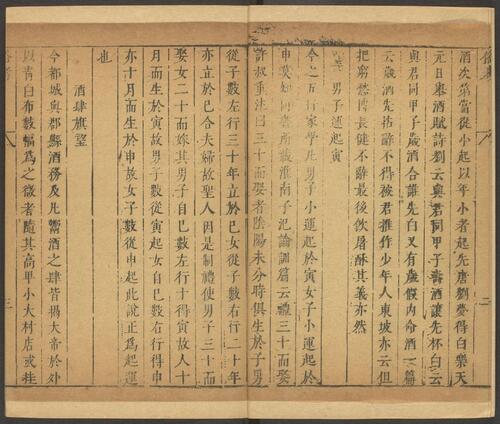 酒次第當從小起以年小者起先唐劉夢得白樂天
元日舉酒賦詩劉云與君同甲子壽酒讓先杯白云
與君同甲子歲酒合誰先白又有歲假內命酒一篇
云歲酒先拈辭不得被君推作少年人東坡亦云但
把窮愁博長健不辭最後飲屠酥其義亦然
男子運起寅
今之五行家學凡男子小運起於寅女子小運起於
申莫知何書所載淮南子氾論訓篇云禮三十而娶
許叔重注曰三十而娶者陰陽未分時俱生於子男
從子數左行三十年立於巳女從子數右行二十年
亦立於巳合夫婦故聖人因是制禮使男子三十而
娶女二十而嫁其男子自巳數左行十得寅故人十
月而生於寅故男子數從寅起女自巳數右行得申
亦十月而生於申故女子數從申起此說正為起運
也
酒肆旗望
今都城與郡縣酒務及凡鬻酒之肆皆揭大帘於外
以青白布數幅為之微者隨其高卑小大村店或挂
三